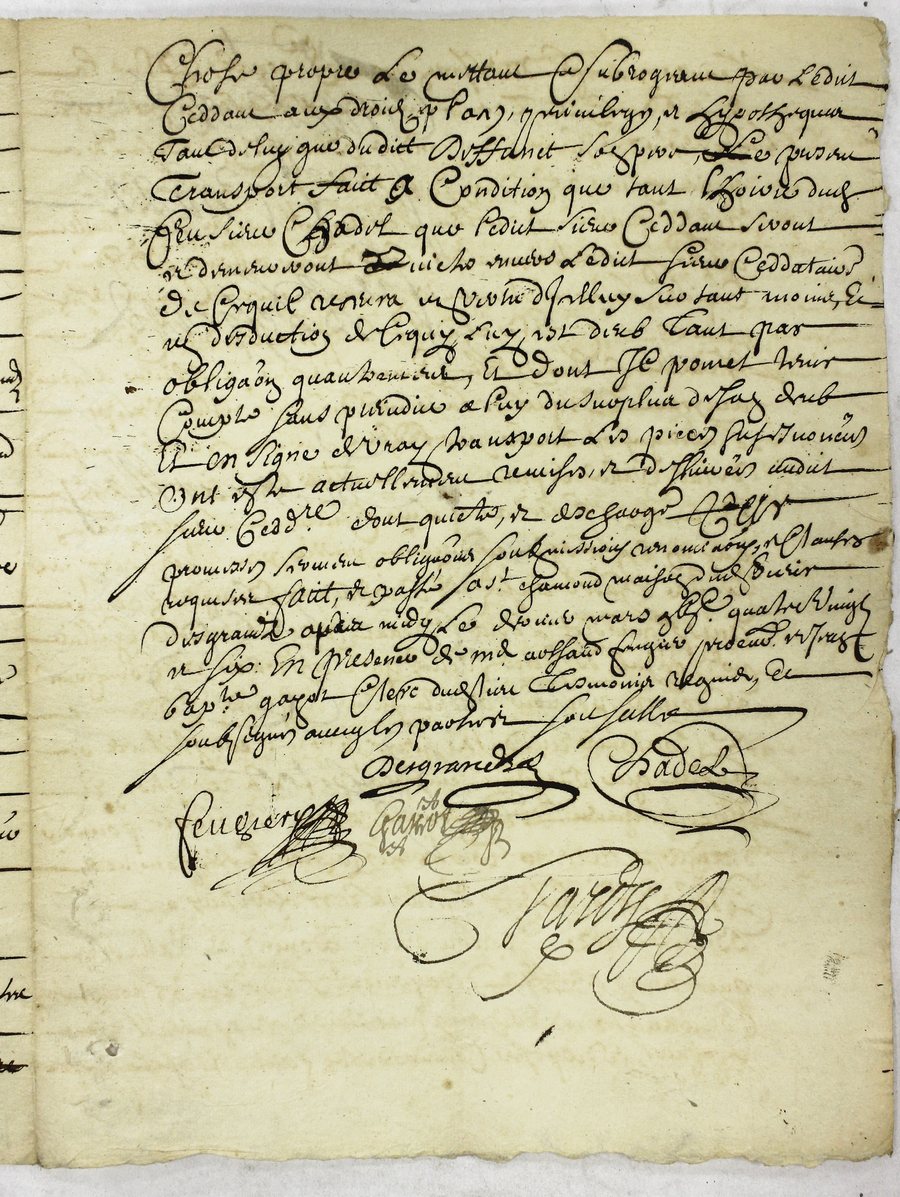 Chose propre Le mettant & subrogeant par Ledit
Ceddant aux droits, plasy, privileges, et hypotheques
Tant de luy que dudict deffunct son pere, Le present
Transport faict a Condition que tant lhoirie dud
feu sieur Chadel que ledict sieur Ceddant seront
et demeureront quicte envers Ledict sieur Ceddataire
de Cequil restera en vertu dicelluy sur tant moins, Et
en desduction de Cequy luy est deub Tant par
obligaõn quautrement, Et dont Il promet tenir
Compte sans prejudice a luy du surplus de son deub
Et en signe de vray transport Les pieces susenoncées
ont esté actuellement remises, et deslivrées audict
sieur Cedd.re dont quicte, et descharge
promesses serment obligaõns soubmissions renonciaõns, et Clauses
requises faict, et passé a st. chamond maison dud sieur
desgrands apres midy Le dernier mars gbjc. quatre vingt
et six. En presence de me feugier et Jean
bap.te gayot Clerc dud st Tesmoins requis, &
soubsegnés avecq les parties
Desgrands Chadel
feugier Gayot
Tardy